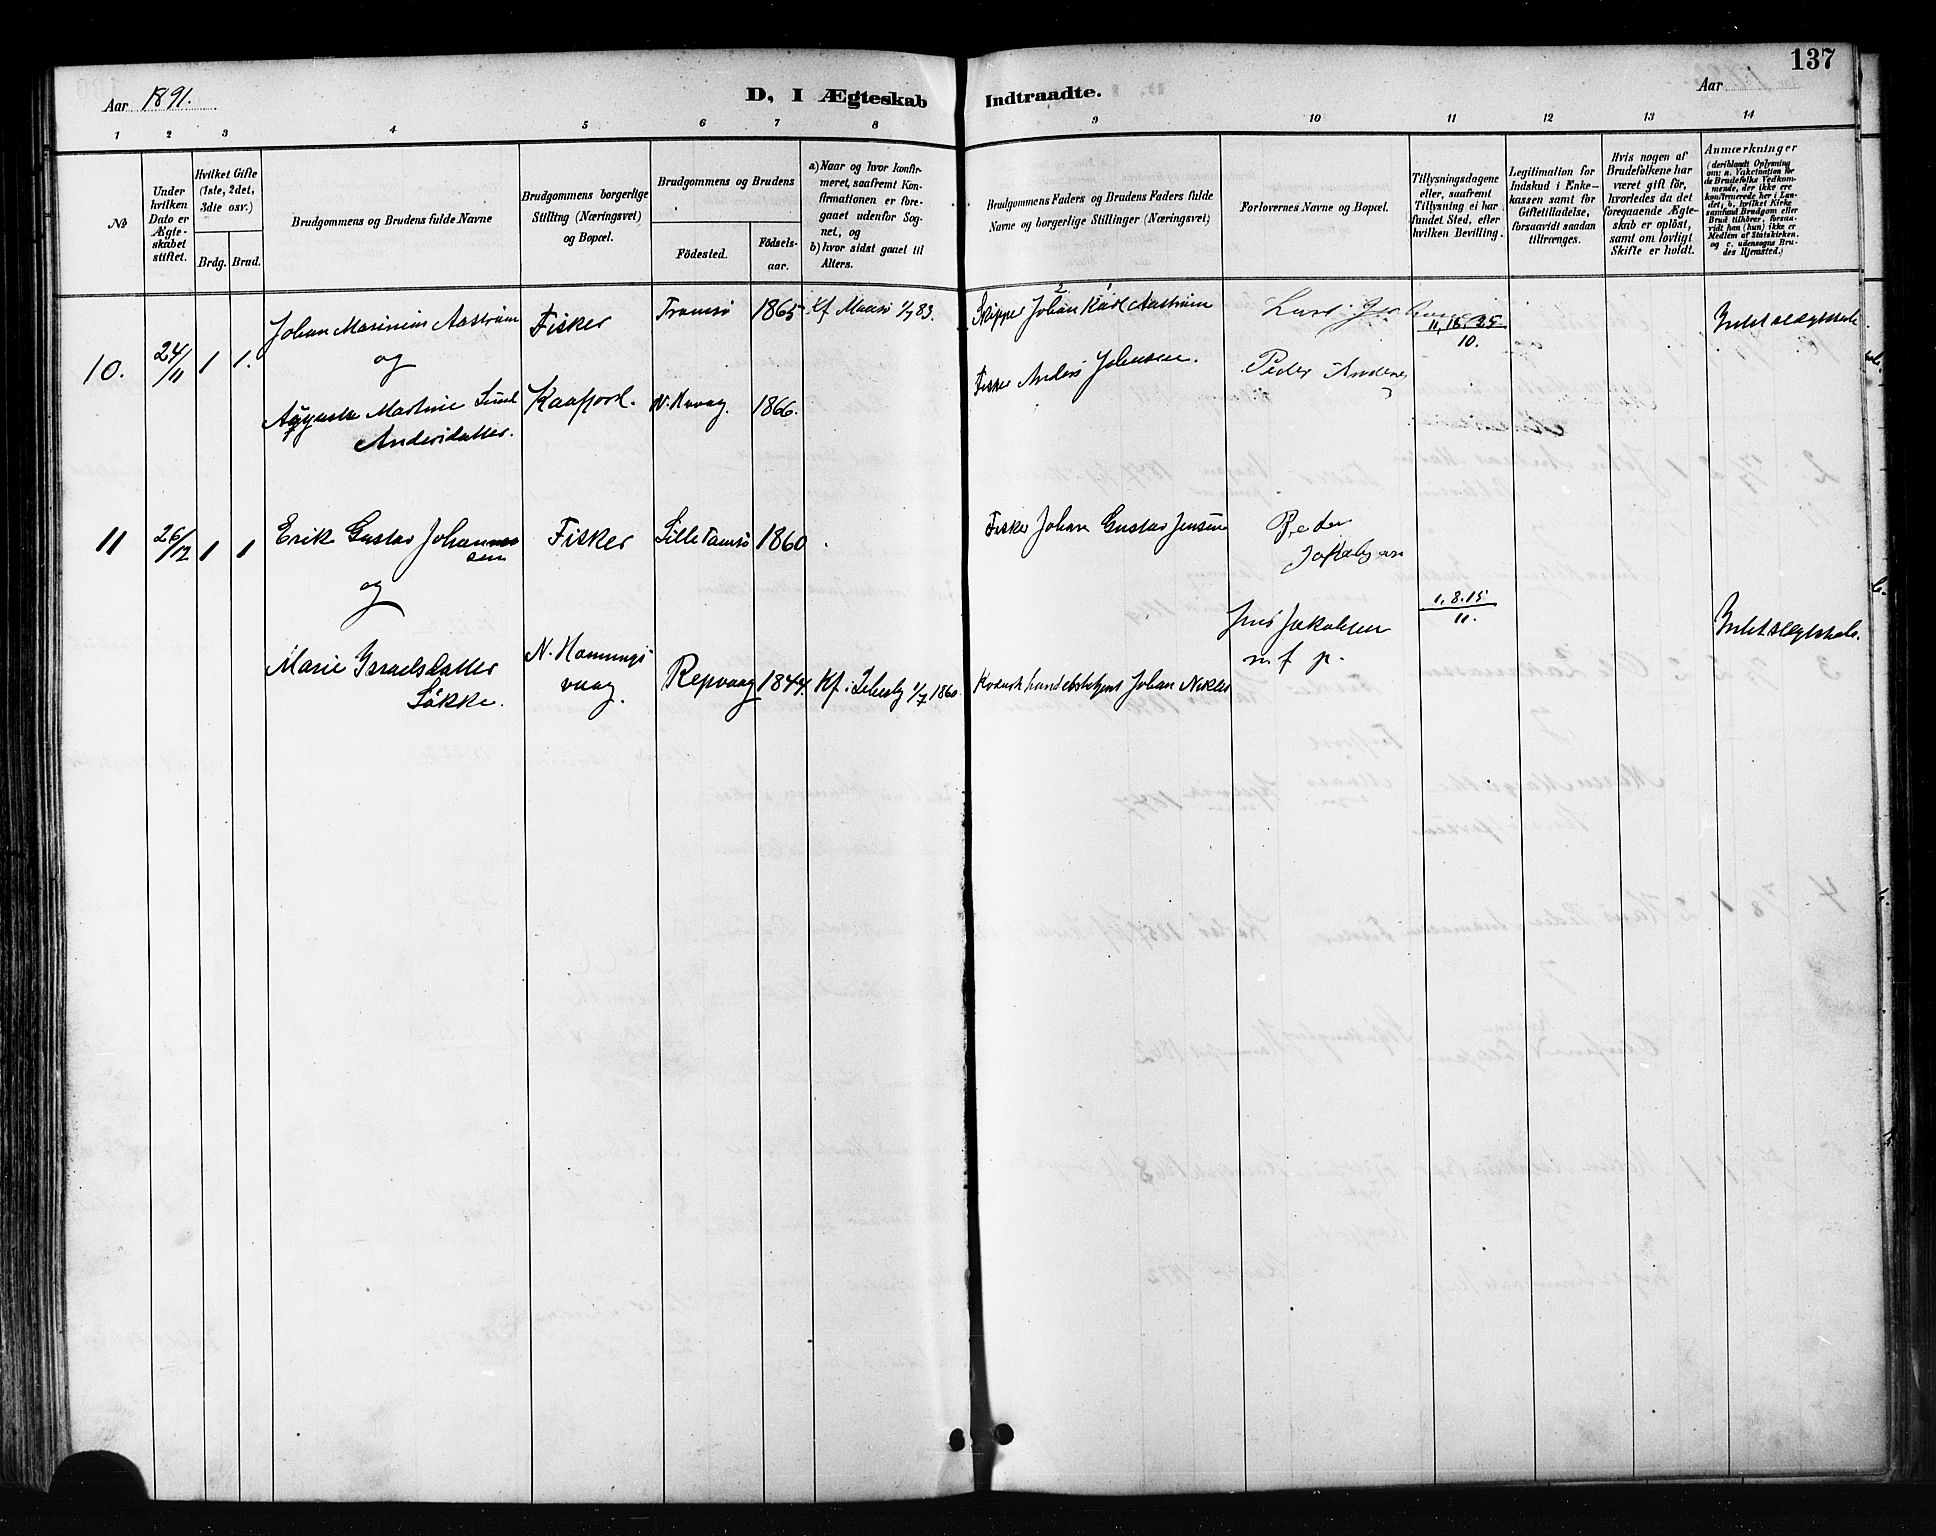 137
Aar 1891.
D, I Ægteskab Indtraadte.
Aar
1 2 3 4 5 6 7 8 9 10 11 12 13 14
No
Under hvilken Dato er Ægteskabet stiftet.
Hvilket Gifte (1ste, 2det, 3die osv.)
Brdg. Brud.
Brudgommens og Brudens fulde Navne
Brudgommens borgerlige Stilling (Næringsvei) og Bopæl.
Brudgommens og Brudens
Fødested.
Fødselsaar.
a) Naar og hvor konfirmeret, saafremt Konfirmationen er foregaaet udenfor Sognet, og
b) hvor sidst gaaet til Alters.
Brudgommens Faders og Brudens Faders fulde Navne og borgerlige Stillinger (Næringsvei)
Forlovernes Navne og Bopæl.
Tillysningsdagene eller, saafremt Tillysning ei har fundet Sted, efter hvilken Bevilling.
Legitimation for Indskud i Enkekassen samt for Giftetilladelse, forsaavidt saadan tiltrænges.
Hvis nogen af Brudefolkene har været gift før, hvorledes da det foregaaende Ægteskab er opløst, samt om lovligt Skifte er holdt.
Anmærkninger
(deriblandt Oplysning om: a. Vakcination for de Brudefolks Vedkommende, der ikke ere konfirmerede her i Landet; b. hvilket Kirkesamfund Brudgom eller Brud tilhører, forsaavidt han (hun) ikke er Medlem af Statskirken, og c. udensogns Brudes Hjemsted.)
10. 24/11 1 1.
Johan Marinius Aastrøm
og
Martine
Andersdatter.
Fisker
Kaafjord.
Tromsø 1865 Kf Maasø 1/7 83.
1866.
2 1
Skipper Johan Karl Aastrøm
Fisker Anders Johnsen.
Peder
11, 18, 25
10.
11 26/12 1 1
Erik Gustav Johannes
sen
og
Marie Israelsdatter
Fisker
N. Honnings
vaag.
Lille Tamsø 1860
Repvaag 1844 Kf i Lebesby 1/7 1860
Fisker Johan Gustav Jensen
Johan
Peder
Jakobsen
Jens Jakobsen
m f p.
1, 8. 15
11.